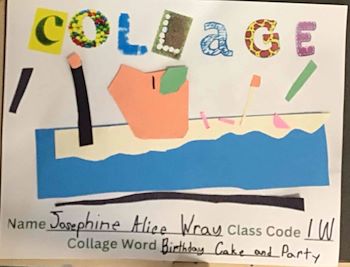 COLLAGE
Name Josephine Alice Wray Class Code 1W
Collage Word Birthday Cake and Party